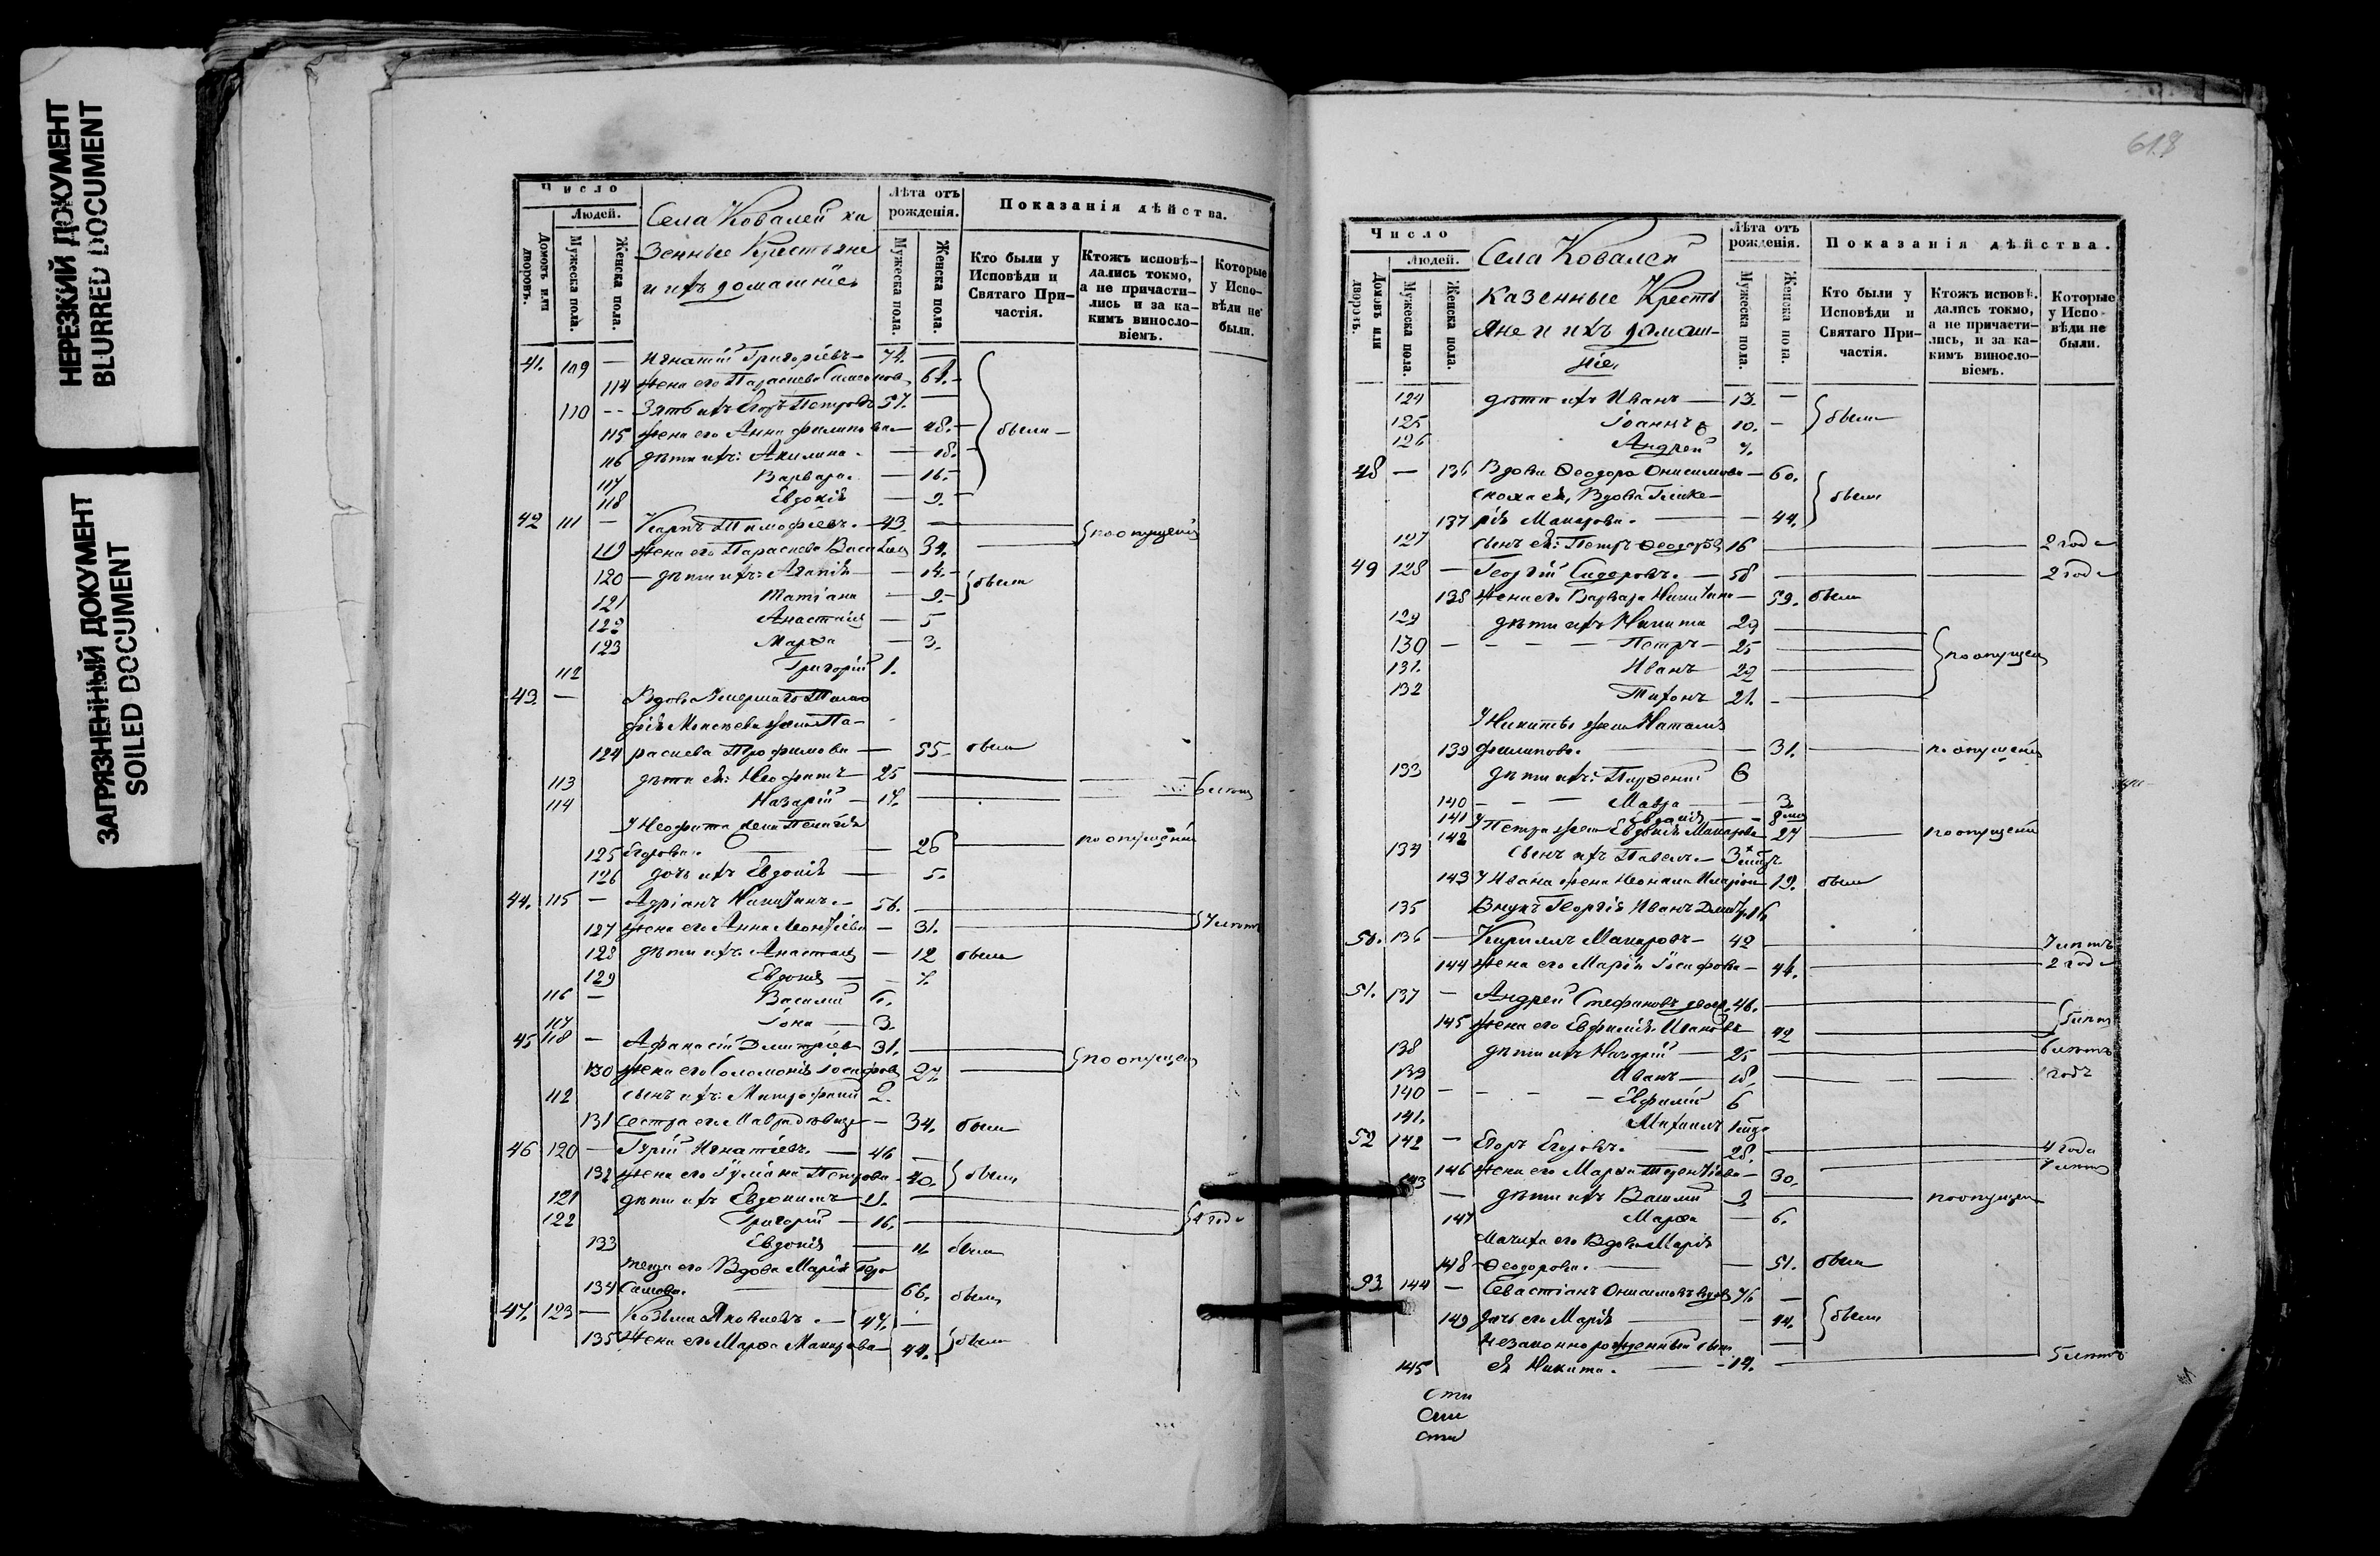 НЕРЕЗКИЙ ДОКУМЕНТ
BLURRED DOCUMENT
ЗАГРЯЗНЕННЫЙ ДОКУМЕНТ
SOILED DOCUMENT
Число
Людей.
Домовъ или дворовъ.
Мужеска пола.
Женска пола.
Села Ковалей ка
зенные Крестьяне
и ихъ домашніе
Лѣта отъ рожденія.
Мужеска пола.
Женска пола.
Показанія дѣйства.
Кто были у Исповѣди и Святаго При-
частія.
Ктожъ исповѣ-
дались токмо,
а не причасти-
лись и за ка-
кимъ виносло-
віемъ.
Которые
у Испо-
вѣди не
были.
41. 109 — Игнатій Григоріевъ — 74. —
114 жена его Параскева 64. —
110 -- Зять ихъ Егоръ Петровъ 57. —
115 жена его Анна Филипова — 48. — были —
116 дѣти ихъ: Акилина — 18. —
117 Варвара. — 16. —
118 Евдокія — 9. —
42 111 — Карпъ Тимофѣевъ. — 43 — по опущенію
119 жена его Параскева 34. —
120 — дѣти ихъ: Агапія — 14. — были
121 Татіана — 9. —
122 Анастасія — 5
123 Марѳа — 3.
112 Григорій 1.
43. — Вдова Умершаго Тимо
фѣя Моисеева жена Па-
124 раскева Трофимова — 55 — были
113 дѣти ея: Неофитъ — 25 — 6 лѣтъ
114 Назарій — 17. —
У Неофита жена Пелагія
125 Егорова. — 26 — по опущенію
126 дочь ихъ Евдокія — 5.
44. 115 — Адріанъ Никитинъ. — 56. —
127 жена его Анна Леонтіева — 31. — 7 лѣтъ
128 дѣти ихъ: Анастасія — 12 были
129 Евдокія — 7.
116 — Василій 6.
117 Іона — 3.
45 118 — Афанасій Димитріевъ 31. — по опущен
130 жена его Соломонія Іосифова 27. —
112 сынъ ихъ: Митрофанъ 2.
131 Сестра его Мавра дѣвица — 34. были
46 120 — Гурій Игнатіевъ. — 46 —
132 жена его Іуліана Петрова — 40. были
121 дѣти ихъ Евдокимъ — 21. —
122 Григорій — 16. — 2 года
133 Евдокія — 11 были
теща его Вдова Марія Гера
134 симова. — 66. были
47. 123 — Козьма Яковлевъ. — 47. —
135 жена его Марѳа Макарова — 44. были
618
Число
Людей.
Домовъ или дворовъ.
Мужеска пола.
Женска пола.
Села Ковалей
казенные Кресть
яне и ихъ домаш-
ніе.
Лѣта отъ рожденія.
Мужеска пола.
Женска пола.
Показанія дѣйства.
Кто были у
Исповѣди и
Святаго При-
частія.
Ктожъ исповѣ-
дались токмо,
а не причасти-
лись, и за ка-
кимъ виносло-
віемъ.
Которые
у Испо-
вѣди не
были.
124 дѣти ихъ Иванъ — 13. — были
125 Іоаннъ 10. —
126 Андрей 7.
48 — 136 Вдова Ѳеодора Онисимова — 60. были
сноха ея, Вдова Глике-
137 рія Макарова. — 44.
127 сынъ ея: Петръ Ѳеодоровъ 16 — 2 года
49 128 — Георгій Сидоровъ. — 58 — 2 года
138 жена его Варвара Никитина — 59. были
129 дѣти ихъ Никита 29 —
130 — Петръ — 25 — по опущен
131. Иванъ — 22 —
132 Тихонъ — 21. —
У Никиты жена Наталія
139 Филипова. — 31. — по опущенію
133 дѣти ихъ: Парѳеній 6
140 — Мавра — 3.
141 Евдокія —
142 У Петра жена Евдокія Макарова — 27 — по опущенію
134 сынъ ихъ Павелъ. —
143 У Ивана жена 19. были
135 Внукъ Георгія Иванъ 16
50. 136 — Кирилъ Макаровъ — 42 — 7 лѣтъ
144 жена его Марія Іосифова — 44. — 2 года
51. 137 — Андрей Стефановъ 46. —
145 жена его Евфимія Иванова 42 — 5 лѣтъ
138 дѣти ихъ Назарій — 25 — 6 лѣтъ
139 Иванъ — 18. — годъ
140 — Евфимій 6
141. Михаилъ
52 142 — Егоръ Егоровъ. — 28. — 4 года
146 жена его Марѳа Терентіева — 30. — 7 лѣтъ
143 — дѣти ихъ Василій 9 — по опущен
147 Марѳа — 6.
Мачиха его Вдова Марія
148 Ѳеодорова. — 51. были
53 144 — Севастіанъ Онисимовъ вдовъ 76 —
149 дочь его Марія — 44. были
Незаконнорожденный сынъ —
145 ея Никита. — 14. — 5 лѣтъ